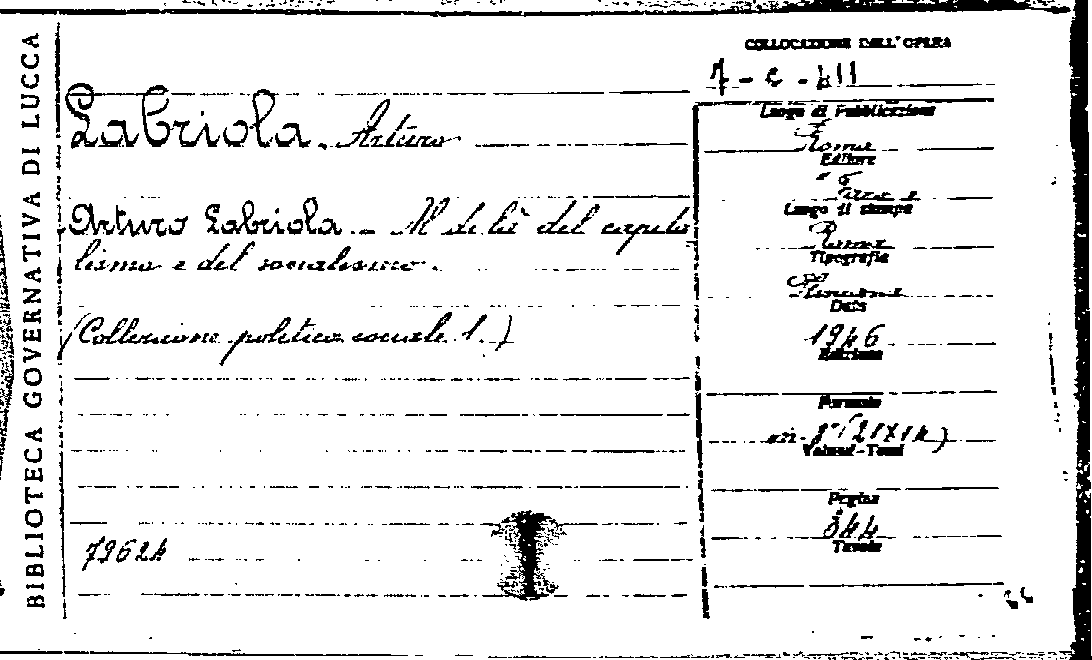 BIBLIOTECA GOVERNATIVA DI LUCCA
Labriola. Arturo
Arturo Labriola. - Al di là del capita
lismo e del socialismo.
(Collezione politico sociale 1.)
79624
COLLOCAZIONE DELL'OPERA
7 - c - 411
Luogo di Pubblicazione
Roma
Editore
Luogo di stampa
Roma
Tipografia
Data
1946
Edizione
Formato
in-8° (21X14)
Volumi-Tomi
Pagine
344
Tavole